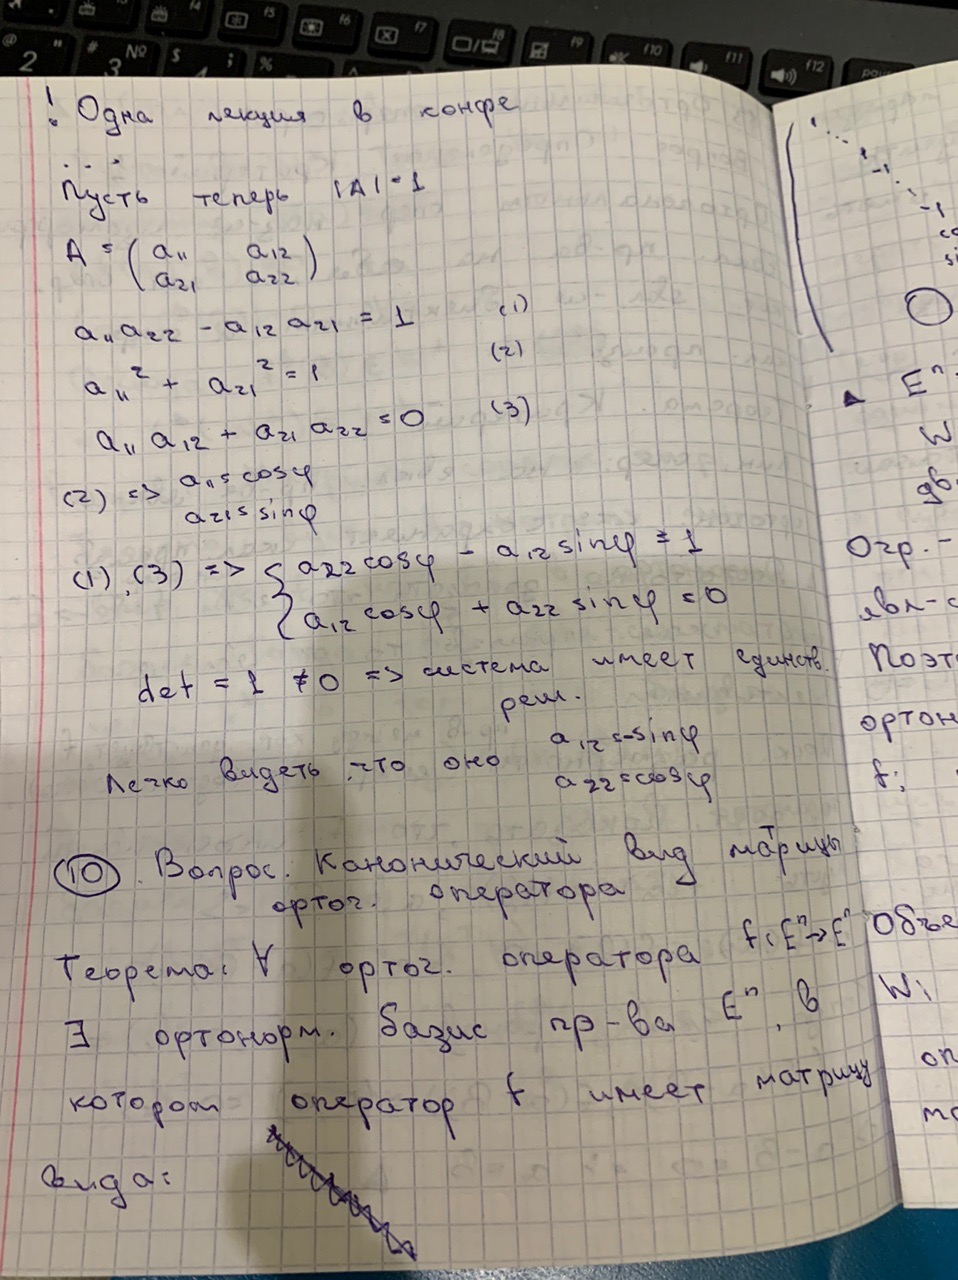 ! Одна лекция в конфе
...
Пусть теперь |A| = 1
A = (a₁₁ a₁₂
a₂₁ a₂₂)
a₁₁a₂₂ - a₁₂a₂₁ = 1 (1)
a₁₁² + a₂₁² = 1 (2)
a₁₁a₁₂ + a₂₁a₂₂ = 0 (3)
(2) => a₁₁ = cosφ
a₂₁ = sinφ
(1), (3) => { a₂₂cosφ - a₁₂sinφ = 1
a₁₂cosφ + a₂₂sinφ = 0
det = 1 ≠ 0 => система имеет единств.
реш.
Легко видеть, что оно a₁₂ = -sinφ
a₂₂ = cosφ
(10). Вопрос. Канонический вид матрицы
ортог. оператора
Теорема: ∀ ортог. оператора f: Eⁿ → Eⁿ
∃ ортонорм. базис пр-ва Eⁿ, в
котором оператор f имеет матрицу
вида:
1
1
-1
-1
Eⁿ
W
Огр. -
явл-с
Поэт
ортон
f;
Объе
W₁
оп
@ 2 " # 3 № $ 4 ; %
f4 f5 f6 f7 f8 f9 f10 f11 f12